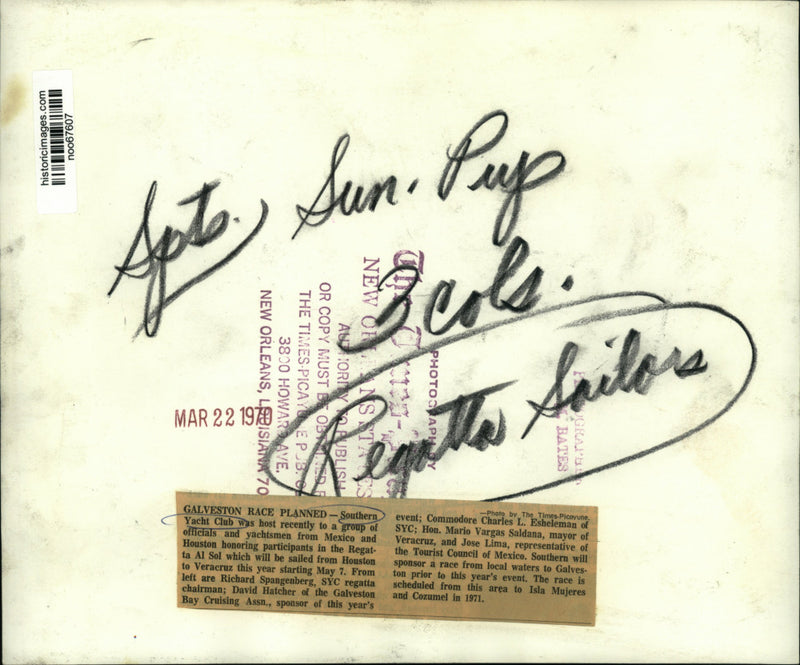 historicimages.com
noo67607
Spts. Sun. Pup
3 cols.
Regatta Sailors
MAR 22 1970
PHOTOGRAPHY
NEW ORLEANS STATES
AUTHORITY TO PUBLISH
OR COPY MUST BE OBTAINED F
THE TIMES-PICAYUNE PUB. C
3800 HOWARD AVE.
NEW ORLEANS, LOUISIANA 70
BATES
GALVESTON RACE PLANNED — Southern
Yacht Club was host recently to a group of
officials and yachtsmen from Mexico and
Houston honoring participants in the Regat-
ta Al Sol which will be sailed from Houston
to Veracruz this year starting May 7. From
left are Richard Spangenberg, SYC regatta
chairman; David Hatcher of the Galveston
Bay Cruising Assn., sponsor of this year's
—Photo by The Times-Picayune
event; Commodore Charles L. Eshleman of
SYC; Hon. Mario Vargas Saldana, mayor of
Veracruz, and Jose Lima, representative of
the Tourist Council of Mexico. Southern will
sponsor a race from local waters to Galves-
ton prior to this year's event. The race is
scheduled from this area to Isla Mujeres
and Cozumel in 1971.